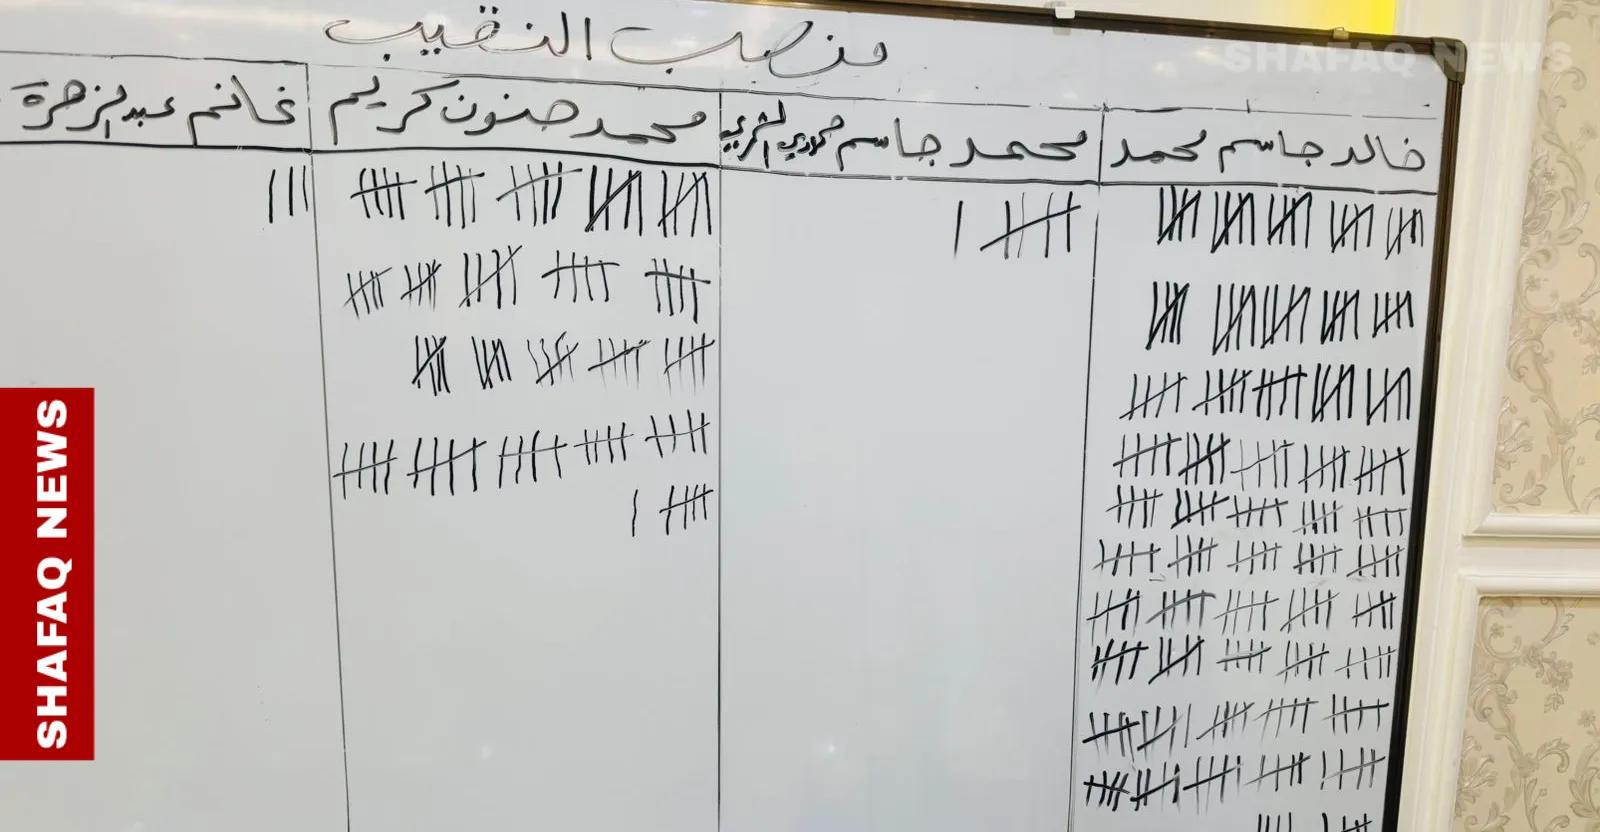 منصب النقيب
خالد جاسم محمد
محمد جاسم
محمد حنون كريم
غانم عبد الزهرة
SHAFAQ NEWS
SHAFAQ NEWS